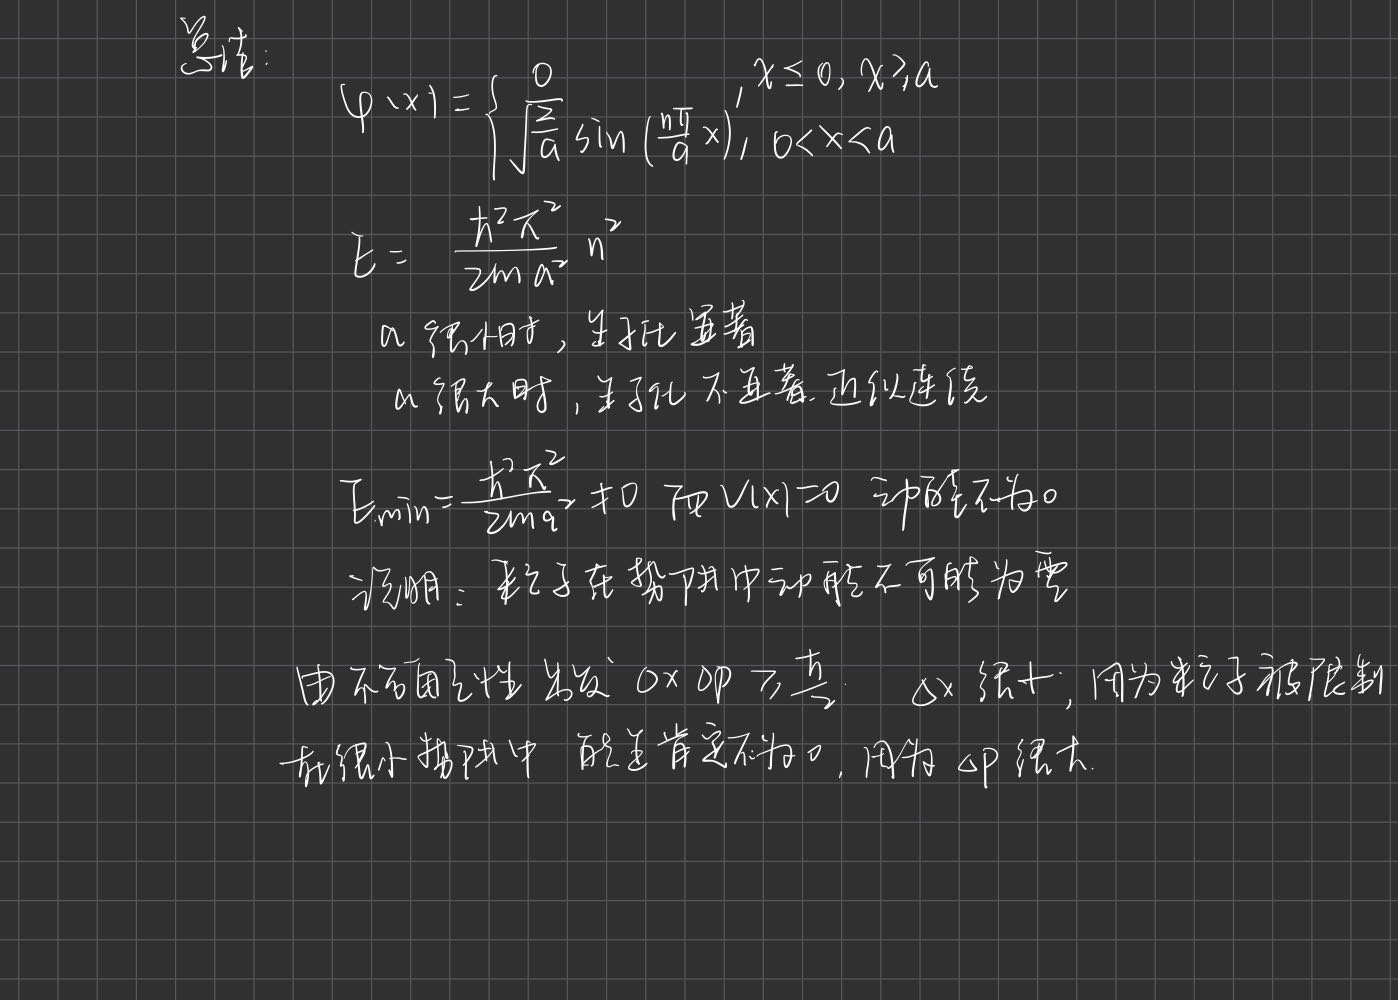 总结:
φ(x) = { 0 , x ≤ 0, x ≥ a
√(2/a) sin (nπ/a x), 0<x<a
E = ħ²π²/2ma² n²
a 很小时, 量子化显著
a 很大时, 量子化不显著. 近似连续
Emin = ħ²π²/2ma² ≠0 而 V(x)=0 动能不为0
说明: 粒子在势阱中动能不可能为零
由不确定性出发 Δx Δp ≥ ħ/2. Δx 很小, 因为粒子被限制
在很小势阱中 能量肯定不为0, 因为 Δp 很大.